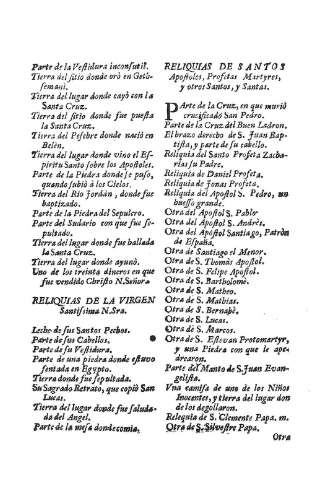 Parte de la Vestidura inconsutil.
Tierra del sitio donde orò en Getsemani.
Tierra del lugar donde cayò con la
Santa Cruz.
Tierra del sitio donde fue puesta
la Santa Cruz.
Tierra del Pesebre donde naciò en
Belèn.
Tierra del lugar donde vino el Espiritu
Santo sobre los Apostoles.
Parte de la Piedra donde se puso,
quando subiò à los Cielos.
Tierra del Rio Jordàn, donde fue
baptizado.
Parte de la Piedra del Sepulcro.
Parte del Sudario con que fue sepultado.
Tierra del lugar donde fue hallada
la Santa Cruz.
Tierra del lugar donde ayunò.
Uno de los treinta dineros en que
fue vendido Christo N. Señor.
RELIQUIAS DE LA VIRGEN
Santissima N. Sra.
Leche de sus Santos Pechos.
Parte de sus Cabellos.
Parte de su Vestidura.
Parte de una piedra donde estuvo
sentada en Egypto.
Tierra donde fue sepultada.
Su Sagrado Retrato, que copiò San
Lucas.
Tierra del lugar donde fue saludada
del Angel.
Parte de la mesa donde comia.
RELIQUIAS DE SANTOS
Apostoles, Profetas Martyres,
y otros Santos, y Santas.
PArte de la Cruz, en que muriò
crucificado San Pedro.
Parte de la Cruz del Buen Ladron.
El brazo derecho de S. Juan Baptista,
y parte de su cabello.
Reliquia del Santo Profeta Zacharias
su Padre.
Reliquia de Daniel Profeta.
Reliquia de Jonas Profeta.
Reliquia del Apostol S. Pedro, un
huesso grande.
Otra del Apostol S. Pablo
Otra del Apostol S. Andrès.
Otra del Apostol Santiago, Patròn
de España.
Otra de Santiago el Menor.
Otra de S. Thomàs Apostol.
Otra de S. Felipe Apostol.
Otra de S. Bartholomè.
Otra de S. Matheo.
Otra de S. Mathias.
Otra de S. Bernabè.
Otra de S. Lucas.
Otra de S. Marcos.
Otra de S. Estevan Protomartyr,
y una Piedra con que le apedrearon.
Parte del Manto de S. Juan Evangelista.
Una camisa de uno de los Niños
Inocentes, y tierra del lugar donde
los degollaron.
Reliquia de S. Clemente Papa. m.
Otra de S. Silvestre Papa.
Otra